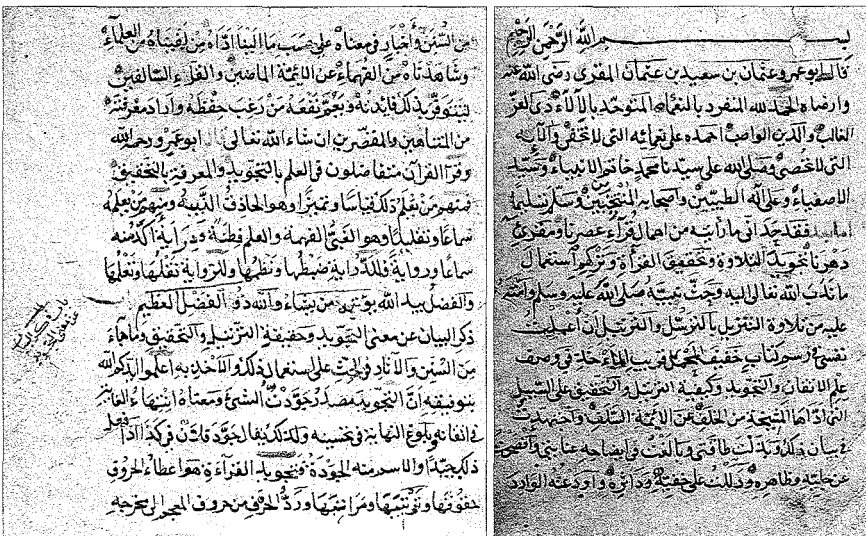 بسم الله الرحمن الرحيم
قال ابو عمرو عثمان بن سعيد بن عثمان المقرى رضى الله عنه
وارضاه الحمد لله المنفرد بالنعماء المتوحد بالآلاء ذى العز
الغالب والدين الواصب احمده على نعمائه التى لا تخفى وآلائه
التى لا تحصى وصلى الله على سيدنا محمد خاتم الانبياء وسيد
الاصفياء وعلى آله الطيبين واصحابه المنتخبين وسلم تسليما
اما بعد فقد حدانى ما رأيته من اهمال قراء عصرنا ومقرئى
دهرنا تجويد التلاوة وتحقيق القرآة وتركهم استعمال
ما ندب الله تعالى اليه وحث نبيه صلى الله عليه وسلم وامته
عليه من تلاوة التنزيل بالترسل والترتيل ان اعملت
نفسى فى رسم كتاب خفيف المحمل قريب المأخذ فى وصف
علم الاتقان والتجويد وكيفية الترتيل والتحقيق على السبيل
التى اداها المشيخة من الخلف عن الايمة السلف واجتهدت
فى بيان ذلك وبذلت طاقتى وبالغت فى ايضاحه عنايتى وافصحت
عن جليه وظاهره ودللت على خفيه وداثره واودعته الوارد
من السنن وأخبار فى معناه على حسب ما الينا اداه من لقيناه من العلماء
وشاهدناه من الفهماء عن الايمة الماضين والقراء السالفين
لتتوفر بذلك فايدته ويعم نفعه من رغب حفظه واراد معرفته
من المتناهين والمقصرين ان شاء الله تعالى قال ابو عمرو رحمه الله
وقراء القرآن متفاضلون فى العلم بالتجويد والمعرفة بالتحقيق
فمنهم من يعلم ذلك قياسا وتميزا وهو الحاذق النبيه ومنهم من يعلمه
سماعا وتقليدا وهو الغبى الفهيه والعلم فطنة ودراية آكد منه
سماعا ورواية فللدراية ضبطها ونظمها وللرواية نقلها وتعلمها
والفضل بيد الله يؤتيه من يشاء والله ذو الفضل العظيم
ذكر البيان عن معنى التجويد وحقيقة الترتيل والتحقيق وما جاء
من السنن والآثار فى الحث على استعمال ذلك والاخذ به اعلموا ايدكم الله
بتوفيقه ان التجويد مصدر جودت الشئ ومعناه انتهاء الغاية
فى اتقانه وبلوغ النهاية فى تحسينه ولذلك يقال جود فلان فى كذا اذا فعل
ذلك جيدا والاسم منه الجودة فتجويد القراءة هو اعطاء الحروف
حقوقها وترتيبها ومراتبها ورد الحرف من حروف المعجم الى مخرجه